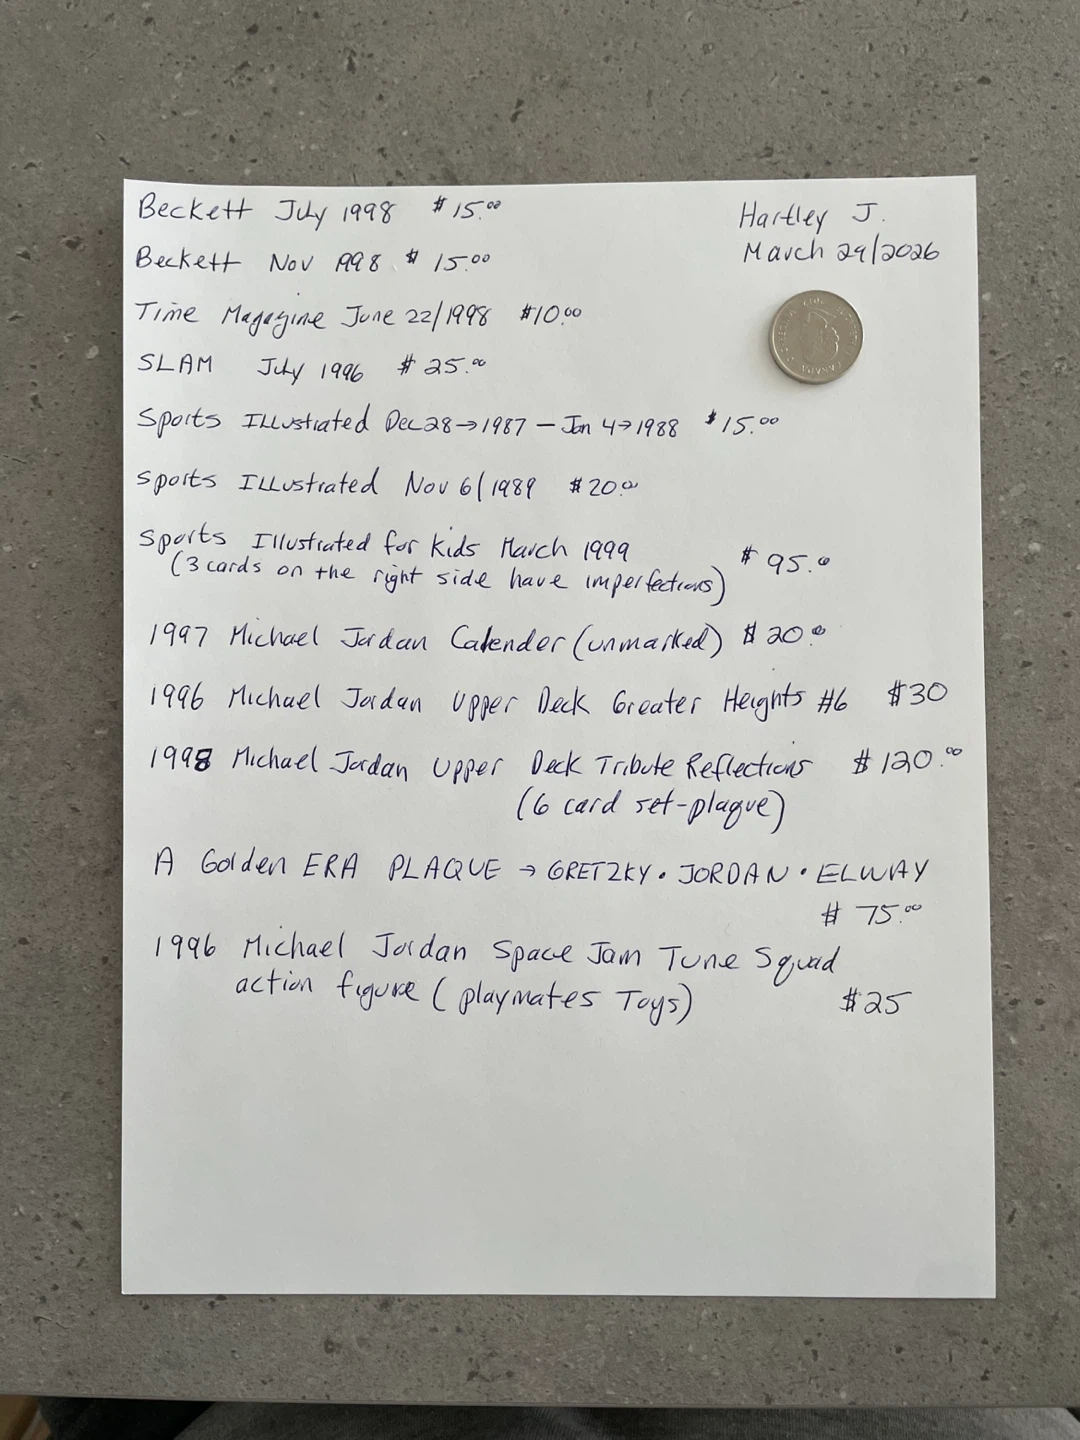 Beckett July 1998 $15.00
Hartley J.
March 29/2026
Beckett Nov 1998 $15.00
Time Magazine June 22/1998 $10.00
SLAM July 1996 $25.00
Sports ILLustrated Dec 28→1987 – Jan 4→1988 $15.00
Sports ILLustrated Nov 6/1989 $20.00
Sports Illustrated for kids March 1999
(3 cards on the right side have imperfections) $95.0
1997 Michael Jordan Calender (unmarked) $20.0
1996 Michael Jordan Upper Deck Greater Heights #6 $30
1998 Michael Jordan Upper Deck Tribute Reflections $120.00
(6 card set-plaque)
A Golden ERA PLAQUE → GRETZKY • JORDAN • ELWAY
$75.00
1996 Michael Jordan Space Jam Tune Squad
action figure (playmates Toys) $25